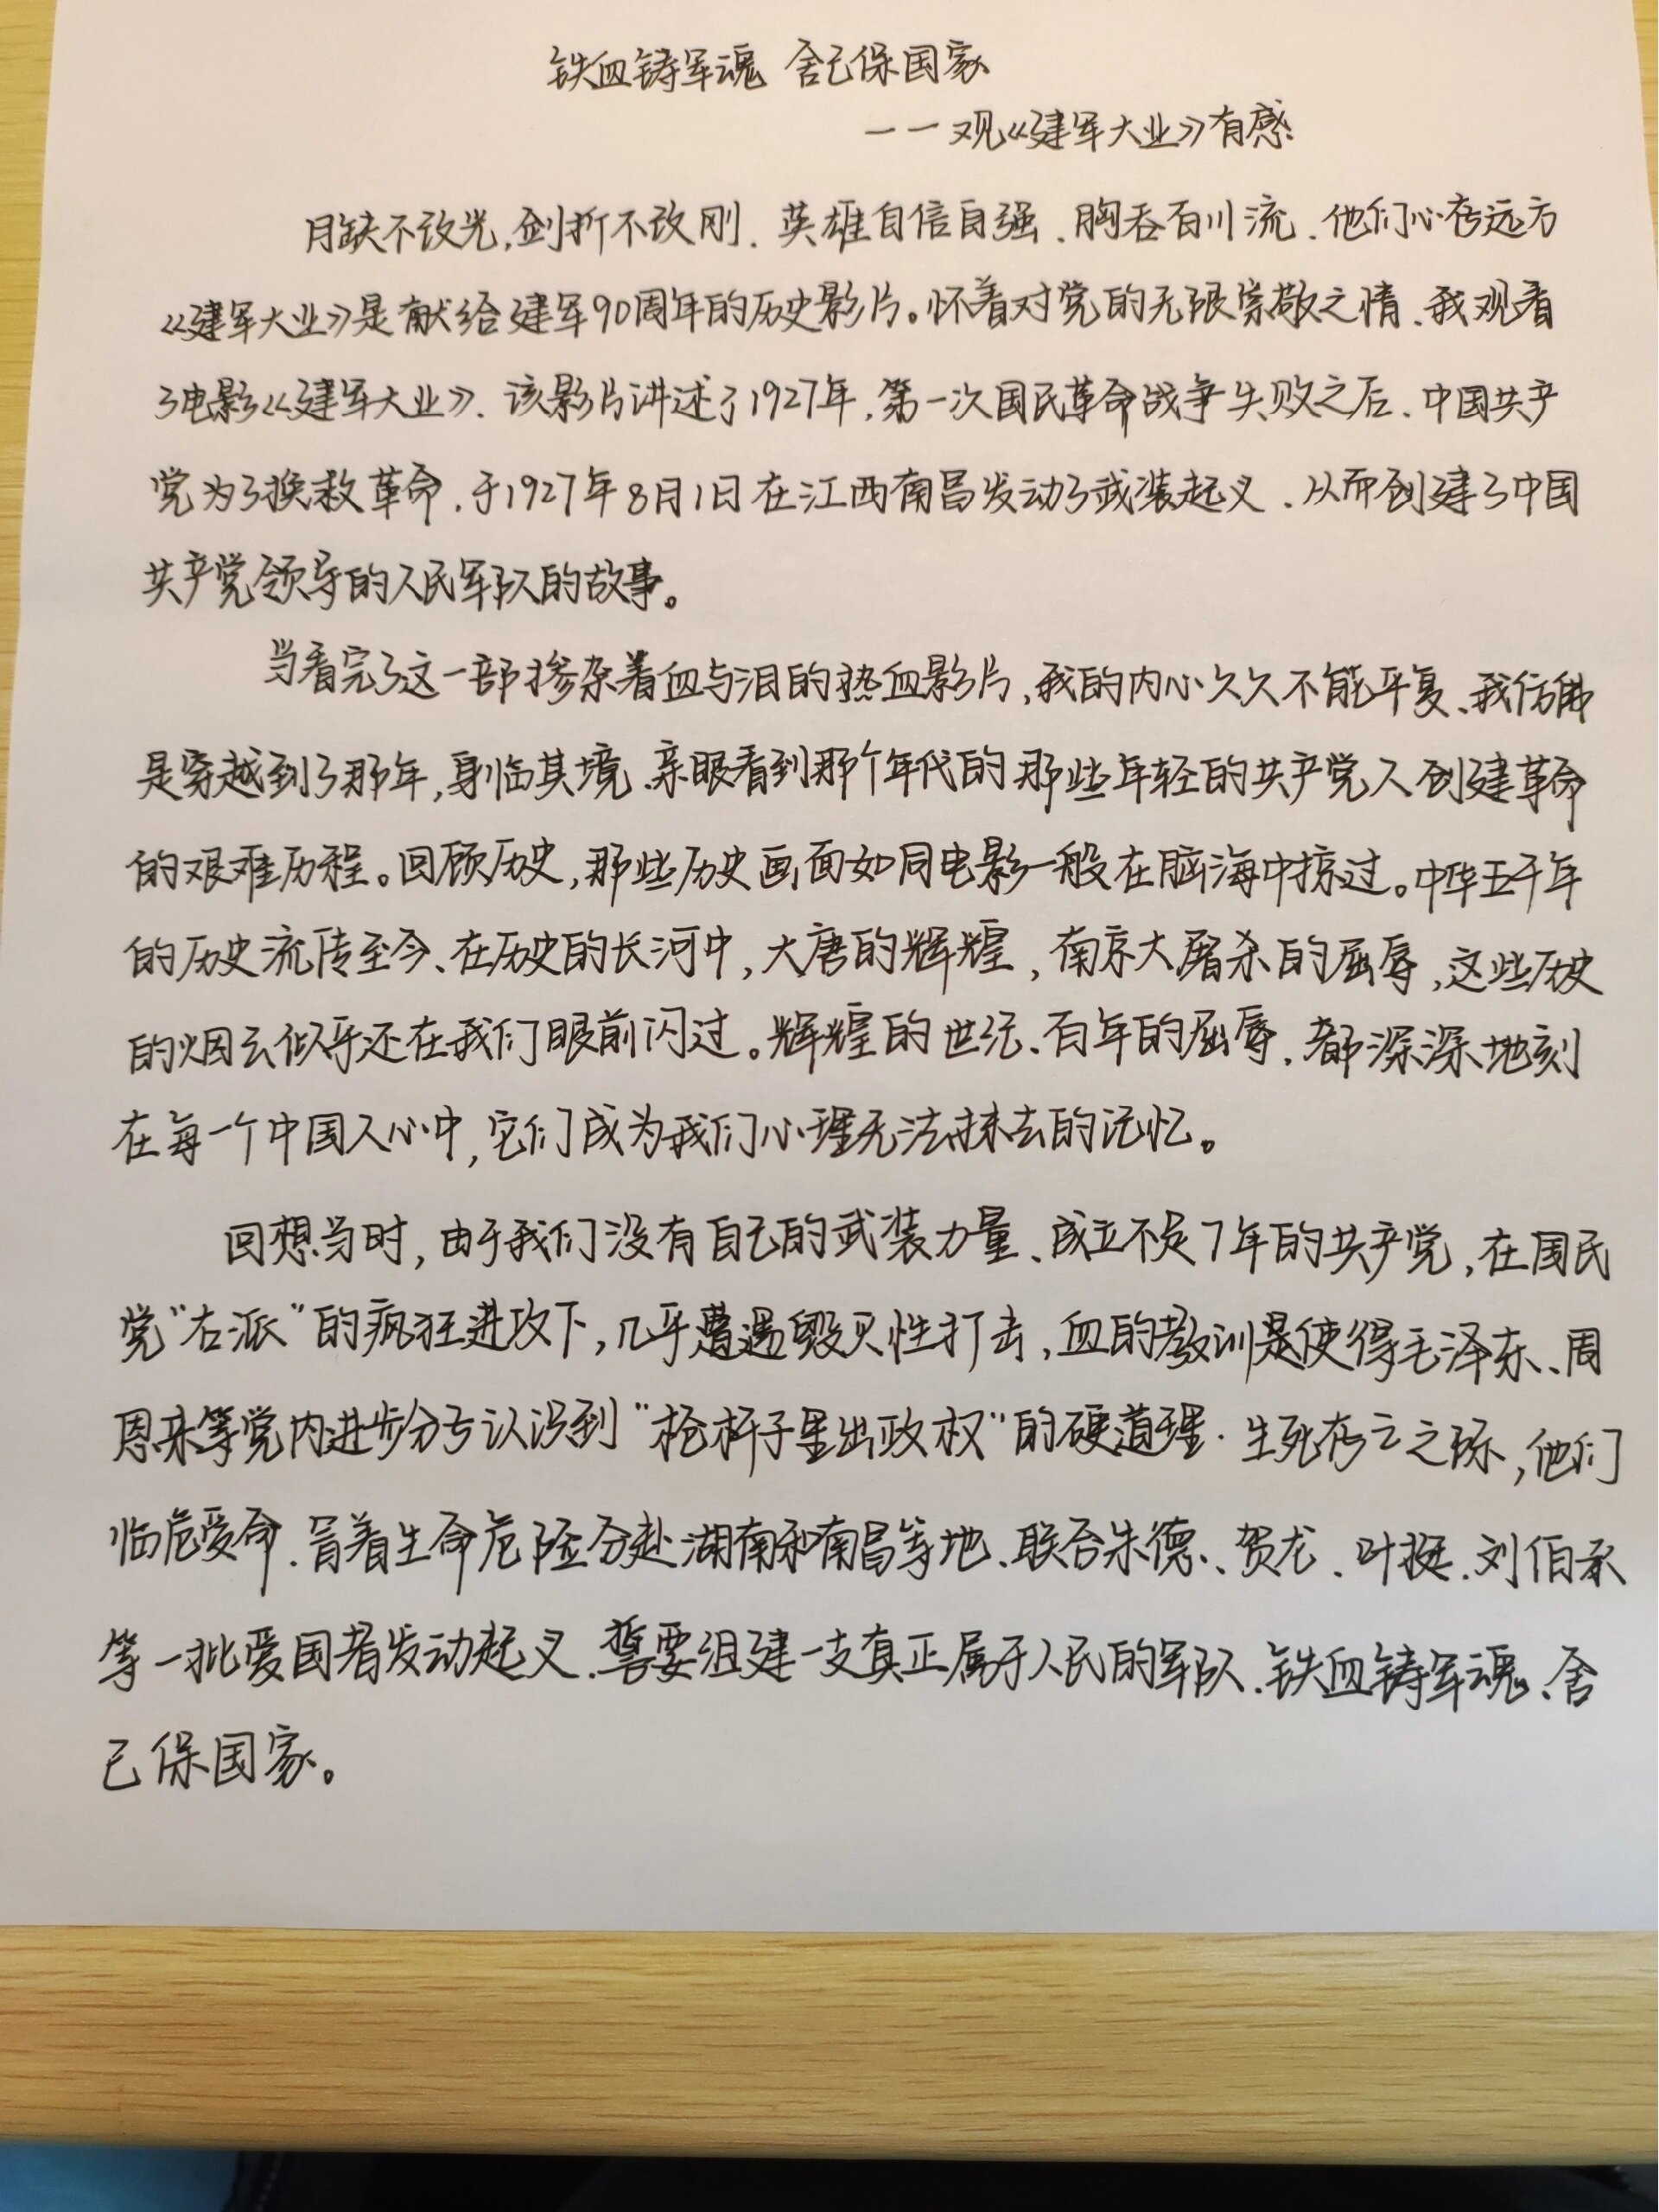 铁血铸军魂 舍己保国家
——观《建军大业》有感
月缺不改光,剑折不改刚、英雄自信自强、胸吞百川流、他们心存远方
《建军大业》是献给建军90周年的历史影片。怀着对党的无限崇敬之情、我观看
了电影《建军大业》、该影片讲述了1927年,第一次国民革命战争失败之后、中国共产
党为了换救革命,于1927年8月1日在江西南昌发动了武装起义、从而创建了中国
共产党领导的人民军队的故事。
当看完了这一部掺杂着血与泪的热血影片,我的内心久久不能平复、我仿佛
是穿越到了那年,身临其境、亲眼看到那个年代的那些年轻的共产党人创建革命
的艰难历程。回顾历史,那些历史画面如同电影一般在脑海中掠过。中华五千年
的历史流传至今、在历史的长河中,大唐的辉煌,南京大屠杀的屈辱,这些历史
的烟云似乎还在我们眼前闪过。辉煌的世纪、百年的屈辱,都深深地刻
在每一个中国人心中,它们成为我们心理无法抹去的记忆。
回想当时,由于我们没有自己的武装力量、成立不足7年的共产党,在国民
党"右派"的疯狂进攻下,几乎遭遇毁灭性打击,血的教训是使得毛泽东、周
恩来等党内进步分子认识到"枪杆子里出政权"的硬道理.生死存亡之际,他们
临危受命、冒着生命危险分赴湖南和南昌等地、联合朱德、贺龙、叶挺、刘伯承
等一批爱国者发动起义、誓要组建一支真正属于人民的军队、铁血铸军魂、舍
己保国家。